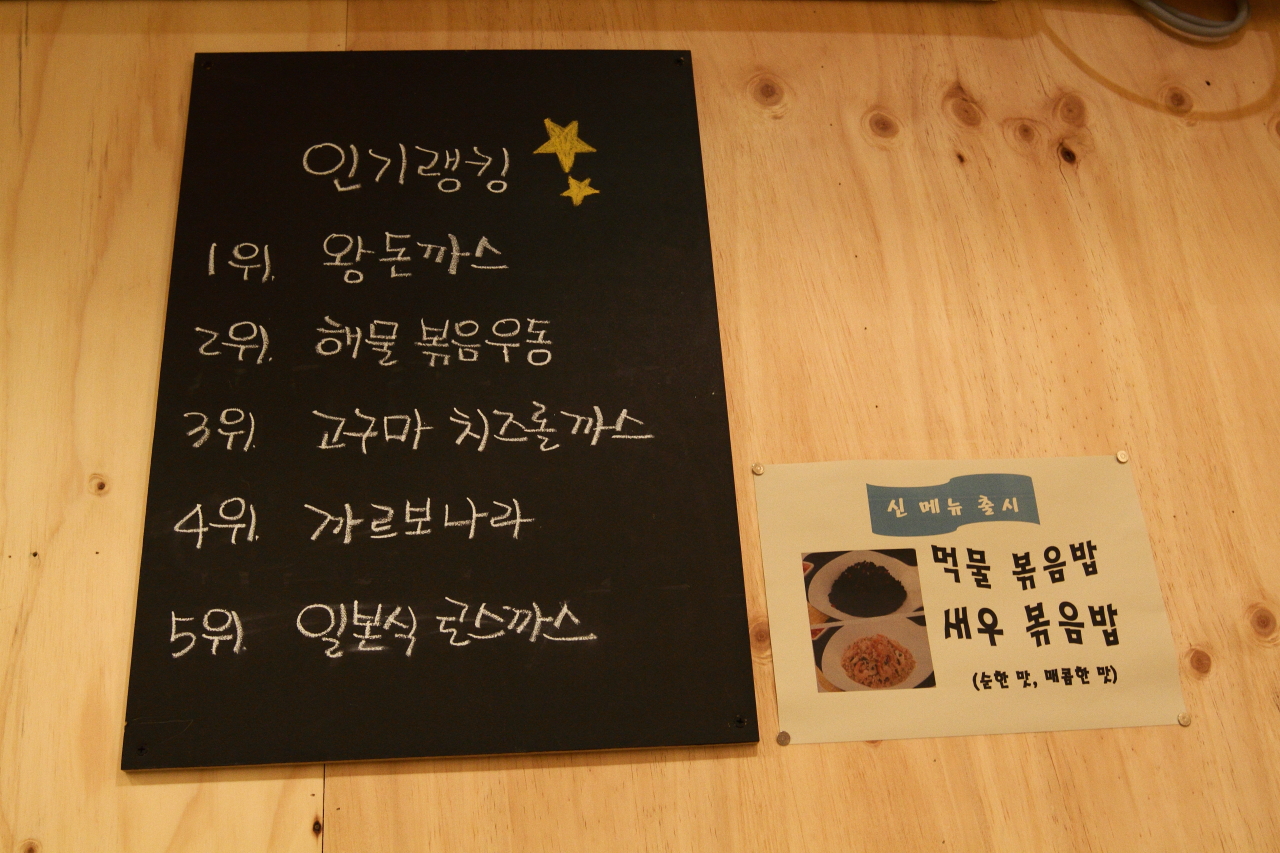 인기랭킹
1위. 왕돈까스
2위. 해물 볶음우동
3위. 고구마 치즈롤까스
4위. 까르보나라
5위. 일본식 로스까스
신메뉴출시
먹물 볶음밥
새우 볶음밥
(순한 맛, 매콤한 맛)